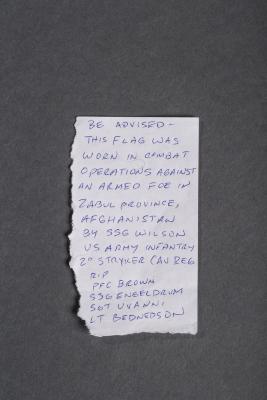 BE ADVISED-
THIS FLAG WAS
WORN IN COMBAT
OPERATIONS AGAINST
AN ARMED FOE IN
ZABUL PROVINCE,
AFGHANISTAN
BY SSG WILSON
US ARMY INFANTRY
2D STRYKER CAV REG
RIP
PFC BROWN
SSG ENGELDRUM
SGT UVANNI
LT BEDNEDSON